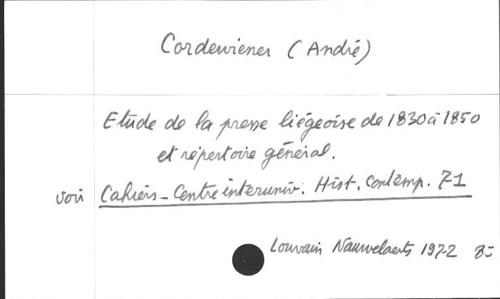 Cordewiener (André)
Etude de la presse liégeoise de 1830 à 1850
et répertoire général.
voir Cahiers - Centre interuniv. Hist. Contemp. 71
Louvain Nauwelaerts 1972 8°